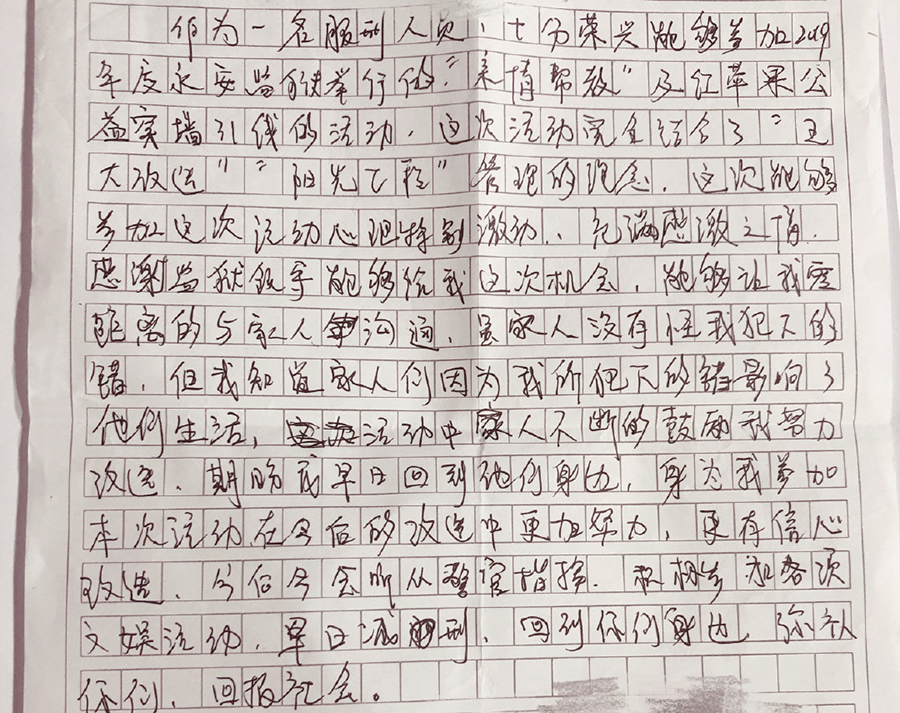 作为一名服刑人员,十分荣兴能够参加2019
年度永安监狱举行的“亲情帮教”及红苹果公
益穿墙引线的活动,这次活动完全结合了“五
大改造”“阳光工程”管理的理念,这次能够
参加这次活动心理特别激动、充满感激之情.
感谢监狱领导能够给我这次机会,能够让我零
距离的与家人沟通,虽家人没有怪我犯下的
错,但我知道家人们因为我所犯下的错影响了
他们生活,活动中家人不断的鼓励我努力
改造、期盼我早日回到他们身边,身为我参加
本次活动在今后的改造中更加努力,更有信心
改造、今后会听从警官指挥.积极参加各项
文娱活动,早日减刑、回到你们身边,弥补
你们,回报社会。